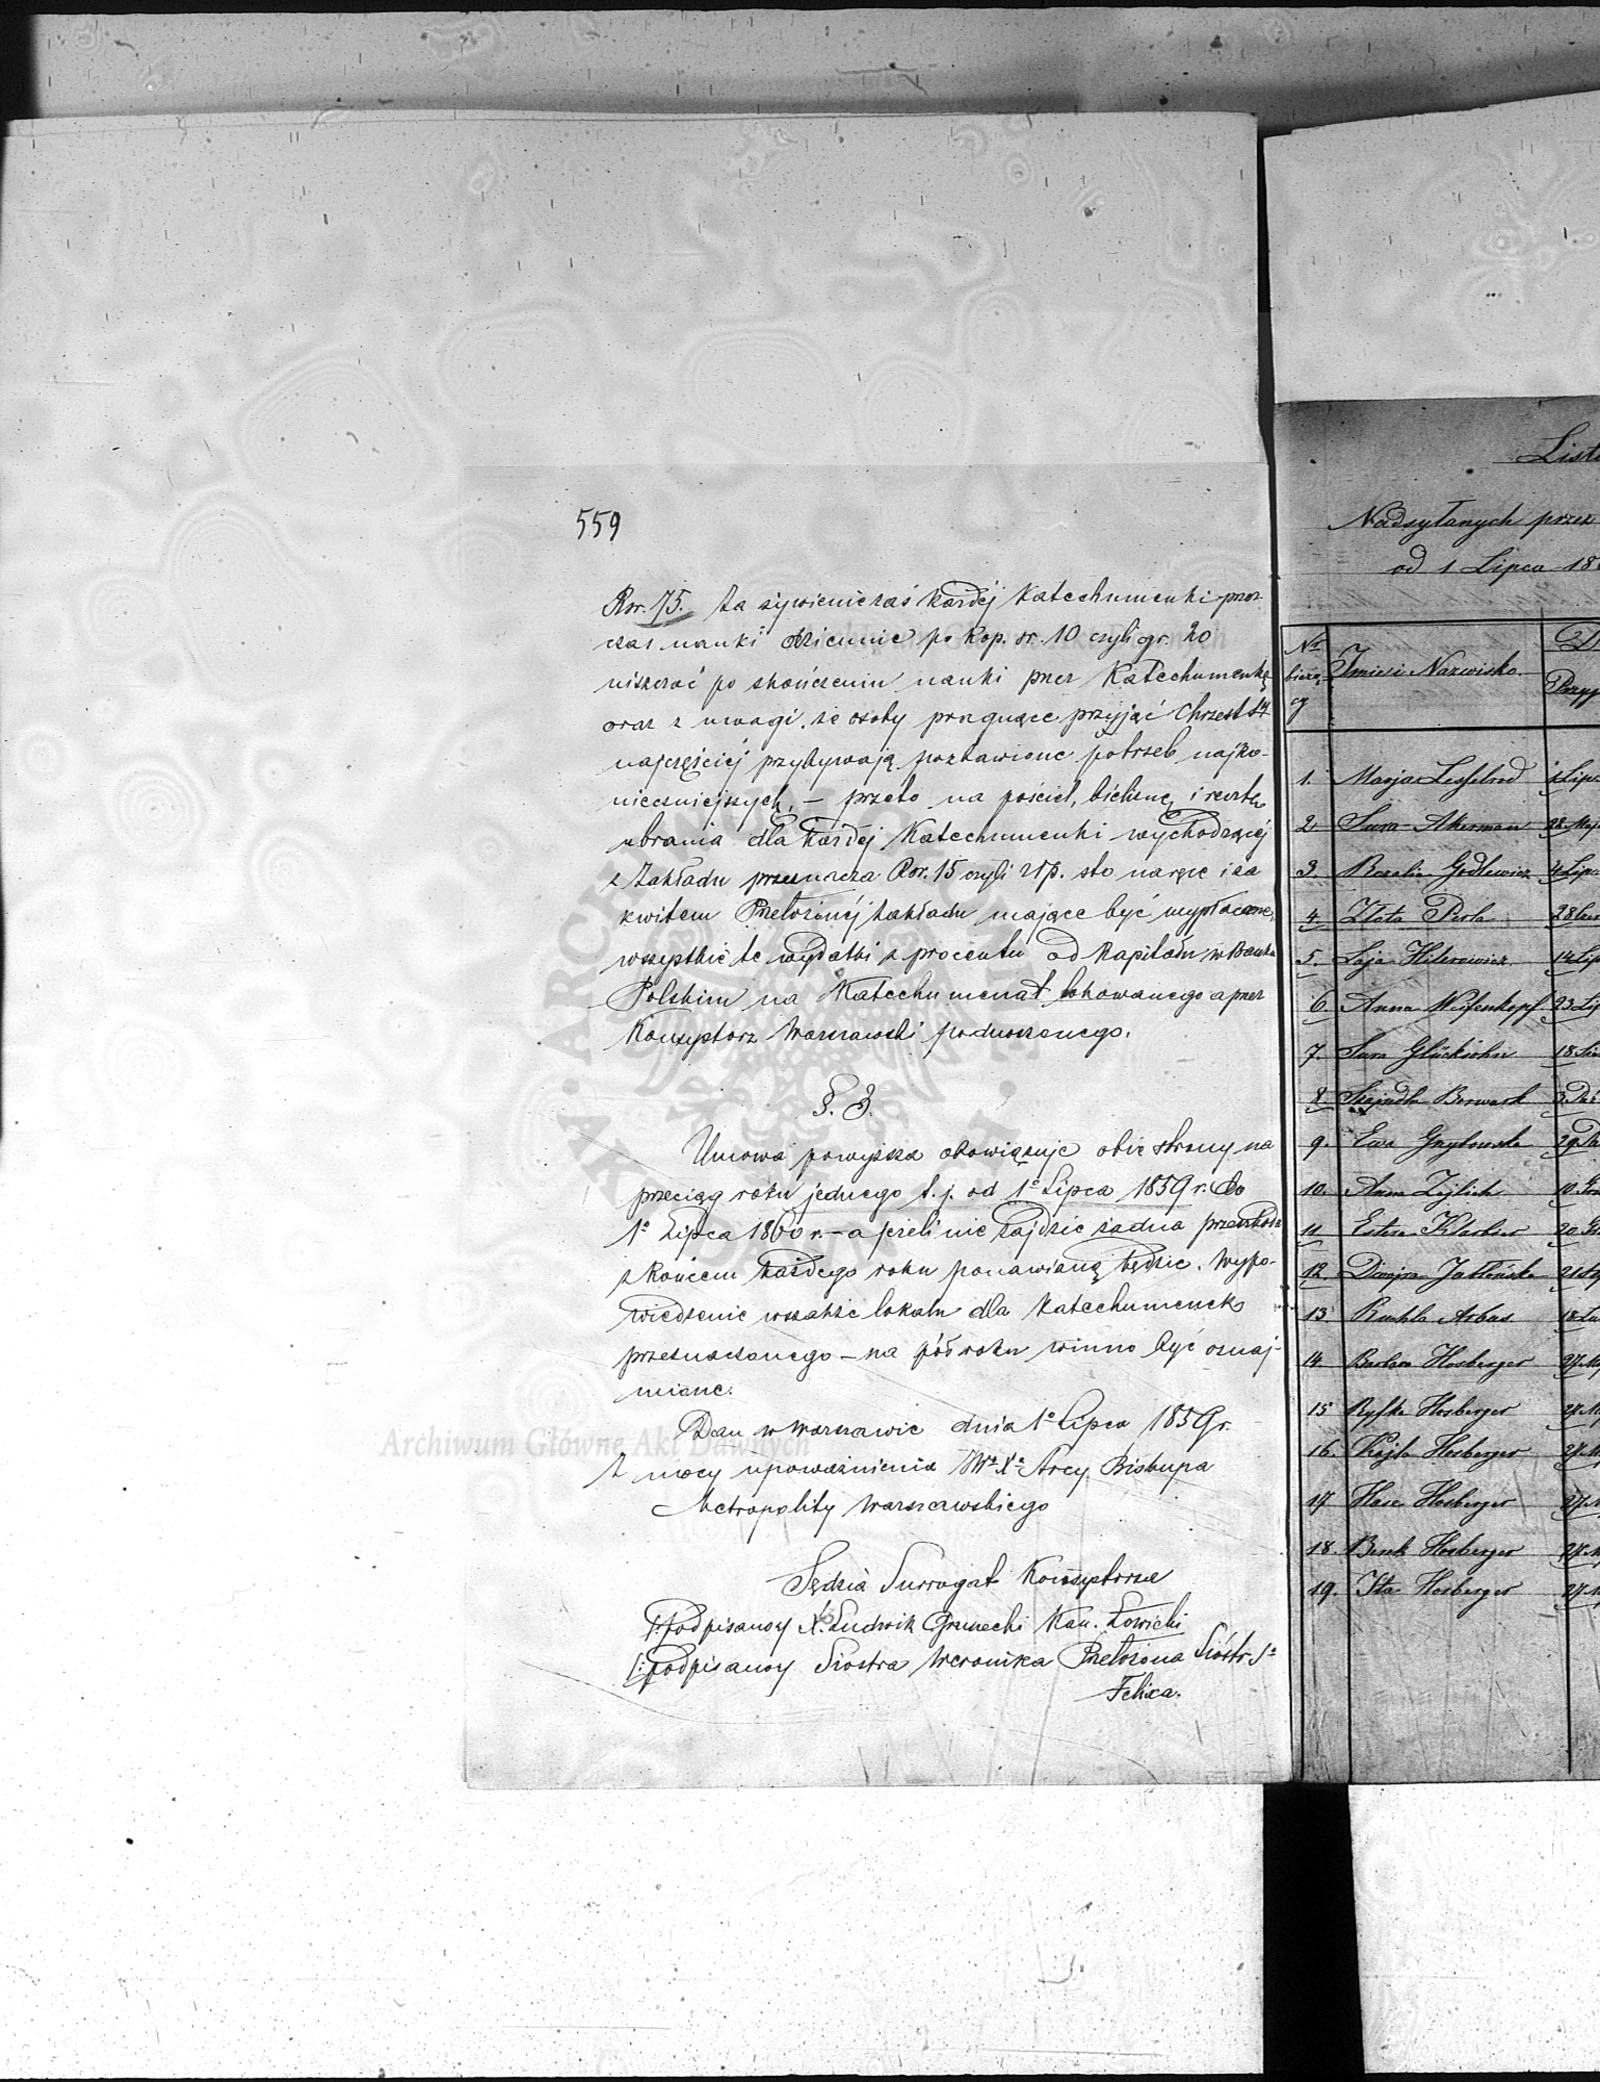 559
Rsr. 75. za żywienie zaś każdej Katechumenki przez
czas nauki dziennie po Kop. sr. 10 czyli gr. 20
uiszczać po skończeniu nauki przez Katechumenkę
oraz z uwagi, że osoby pragnące przyjąć Chrzest Sty
najczęściej przybywają pozbawione potrzeb najko-
nieczniejszych, – przeto na pościel, bieliznę i resztę
ubrania dla każdej Katechumenki wychodzącej
z Zakładu przeznacza Rsr. 15 czyli złp. sto na ręce i za
kwitem Przełożonej zakładu mające być wypłacone,
wszystkie te wydatki z procentu od Kapitału w Banku
Polskim na Katechumenat lokowanego a przez
Konsystorz Warszawski podnoszonego.
§. 3.
Umowa powyższa obowiązuje obie strony na
przeciąg roku jednego t. j. od 1o Lipca 1859 r. do
1o Lipca 1860 r. – a jeżeli nie zajdzie żadna przeszkoda
z końcem każdego roku ponawianą będzie. Wypo-
wiedzenie wszakże lokalu dla Katechumenek
przeznaczonego – na pół roku winno być oznaj-
mione.
Dan w Warszawie dnia 1o Lipca 1859 r.
Z mocy upoważnienia JWo Xo Arcy Biskupa
Metropolity Warszawskiego
Sędzia Surrogat Konsystorza
/:podpisany/ X. Ludwik Kan. Łowicki
/:podpisany/ Siostra Weronika Przełożona Sióstr So
Felixa.
Archiwum Główne Akt Dawnych
List
Nadsyłanych przez
od 1 Lipca 18
No bieżą- cy
Imie i Nazwisko.
Przyp
1. Marja 1 Lip
2. Sura Akerman 28 Maj
3. Rozalia Godlewicz 4 Lip
4. Złota Perla 28
5. Łaja 14 Lip
6. Anna 23 Lip
7. Sura Glücksohn 18
8. Szajndla 3 Paź
9. Ewa Grzybowska 29 Pa
10. Anna Zejlich 10. Gru
11. Estera 20 G
12. Dwojra Jabłońska 21
13. Ruchla Arbus 18 Lu
14. Barbara Hosberger 27 M
15. Ryfka Hosberger 27 M
16. Fajla Hosberger 27 M
17. Hosberger 27 M
18. Berek Hosberger 27 M
19. Ita Hosberger 27 M